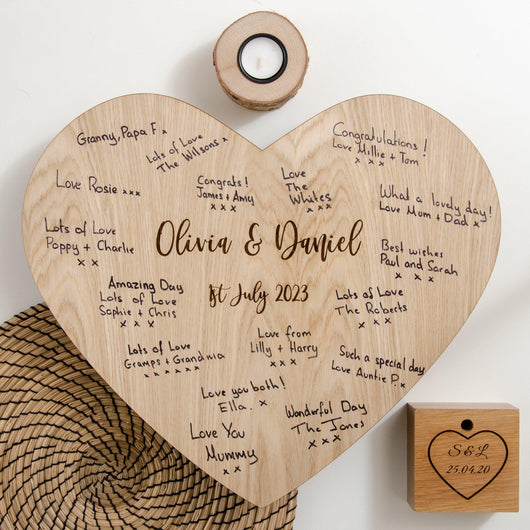 Granny, Papa F x
Lots of Love
The Wilsons x
Congratulations!
Love Millie + Tom
x x x
Love Rosie xxx
Congrats!
James + Amy
x x x
Love
The
Whites
x x x
What a lovely day!
Love Mum + Dad x x x
Lots of Love
Poppy + Charlie
x x
Olivia & Daniel
Best wishes
Paul and Sarah
x x
Amazing Day
Lots of Love
Sophie + Chris
x x x
1st July 2023
Lots of Love
The Roberts
x x
Lots of Love
Gramps + Grandma
x x x x x x
Love from
Lilly + Harry
x x x
Such a special day
Love Auntie P.
x x x
Love you both!
Ella. x
Wonderful Day
The Jones
x x x
Love You
Mummy
x x x
S & L
25.04.20